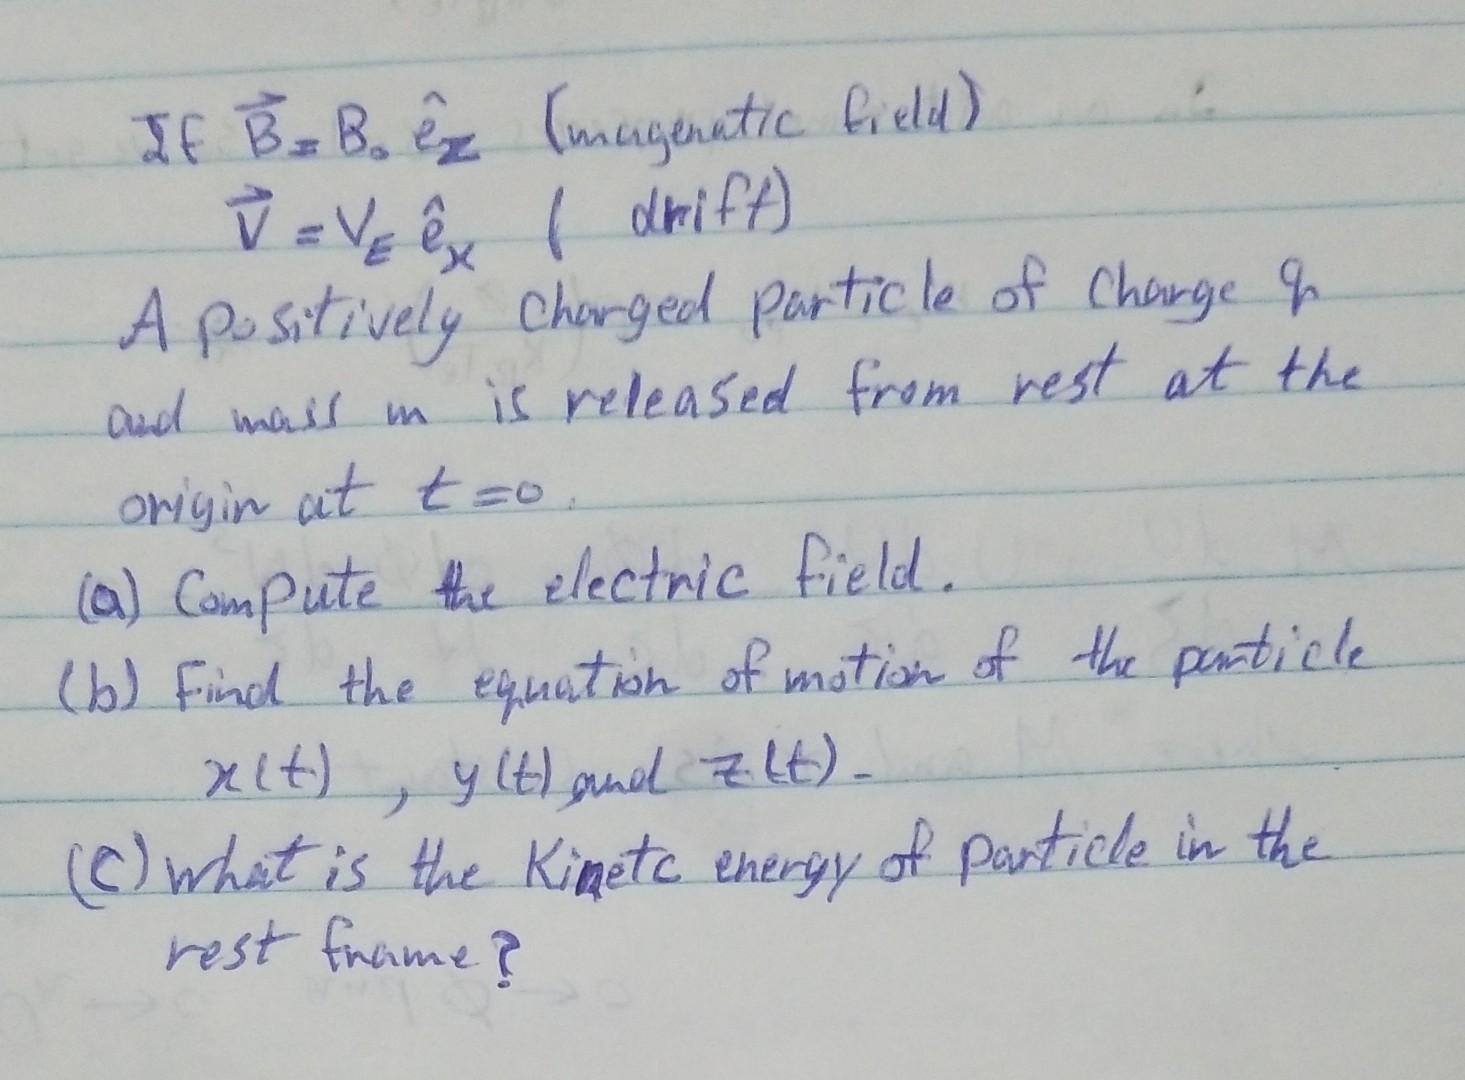 If B⃗ = B₀ ê_z (mugenatic field)
V⃗ = V_E ê_x ( drift)
A positively charged particle of charge q
and mass m is released from rest at the
origin at t=0.
(a) Compute the electric field.
(b) Find the equation of motion of the particle
x(t) , y(t) and z(t) -
(C) what is the Kinetc energy of particle in the
rest frame?